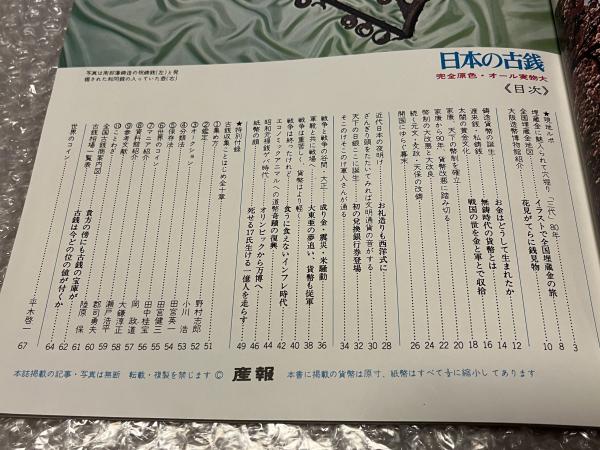 日本の古銭
完全原色・オール実物大
《目次》
写真は南部藩鋳造の祝鋳銭(左)と発
掘された和同銭の入っていた壺(右)
★現地ルポ
埋蔵金に魅入られて穴掘り「三代」80年 3
全国埋蔵金地図 イラストで全国埋蔵金の旅 8
大阪造幣博物館紹介 花見がてらに銭見物 10
鋳造貨幣の誕生 お金はどうして生まれたか 12
渡来銭・私鋳銭 無鋳時代の貨幣とは 14
太閤の黄金文化 戦国の世を金と軍とで収拾 16
家康、天下の幣制を確立 18
家康から90年、貨幣改悪に踏み切る 20
幣制の大改悪と大改良 22
続く元文・文政・天保の改鋳 24
開国にゆらぐ幕末 26
近代日本の夜明け お札造りも西洋式に 28
ざんぎり頭をたたいてみれば文明通貨の音がする 30
天下の日銀ここに誕生 初の兌換銀行券登場 32
そこのけそこのけ軍人さんが通る 34
戦争と戦争の谷間、大正 成り金・震災・米騒動 36
軍靴と共に戦場へ 大東亜の夢追い、貨幣も従軍 38
戦争は重苦しく、貨幣はより軽く 40
戦争は終ったけれど 食うに食えないインフレ時代 42
エコノミックアニマルへの道 幣奇蹟の復興 44
昭和元禄銭ゲバ時代 オリンピックから万博へ 46
紙幣の顔 死せる17氏生ける一億人を走らす 49
★特別付録
古銭収集ことはじめ全十章
①集め方 51
②鑑定 野村志郎 52
③オークション 小川 浩 53
④分類法 田宮英一 54
⑤保存法 田宮健三 55
⑥世界のコイン 田中桂宝 56
⑦マニア紹介 岡 政道 57
⑧資料館紹介 大鎌淳正 58
⑨参考文献 瀬戸浩平 59
⑩ことわざ 郡司勇夫 60
全国古銭商案内図 陸原 保 61
古銭相場一覧表 貴方の傍にも古銭の宝庫が 62
古銭は今どの位の値が付くか 64
世界のコイン 平木啓一 67
本誌掲載の記事・写真は無断 転載・複製を禁じます © 産報 本書に掲載の貨幣は原寸、紙幣はすべて½に縮小してあります